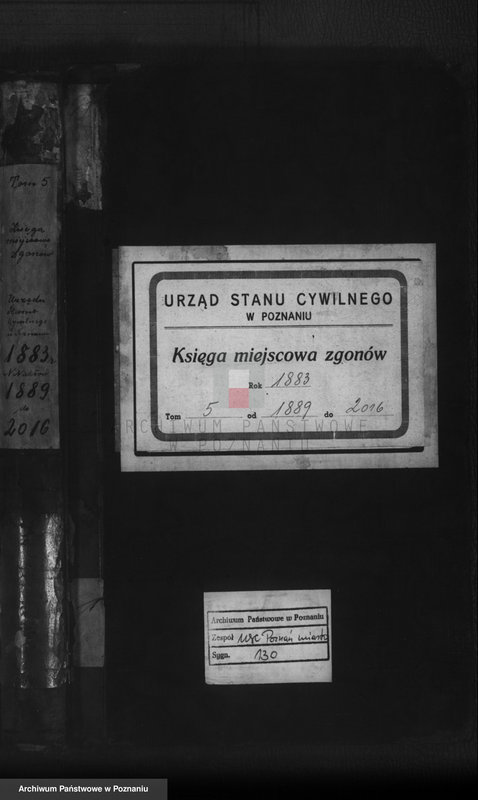 Tom 5
Księga
miejscowa
zgonów
Urzędu
Stanu
Cywilnego
1883 r.
1889
do
2016
URZĄD STANU CYWILNEGO
W POZNANIU
Księga miejscowa zgonów
Rok 1883
Tom 5 od 1889 do 2016
ARCHIWUM PAŃSTWOWE
W POZNANIU
Archiwum Państwowe w Poznaniu
Zespół USC Poznań miasto
Sygn. 130
Archiwum Państwowe w Poznaniu